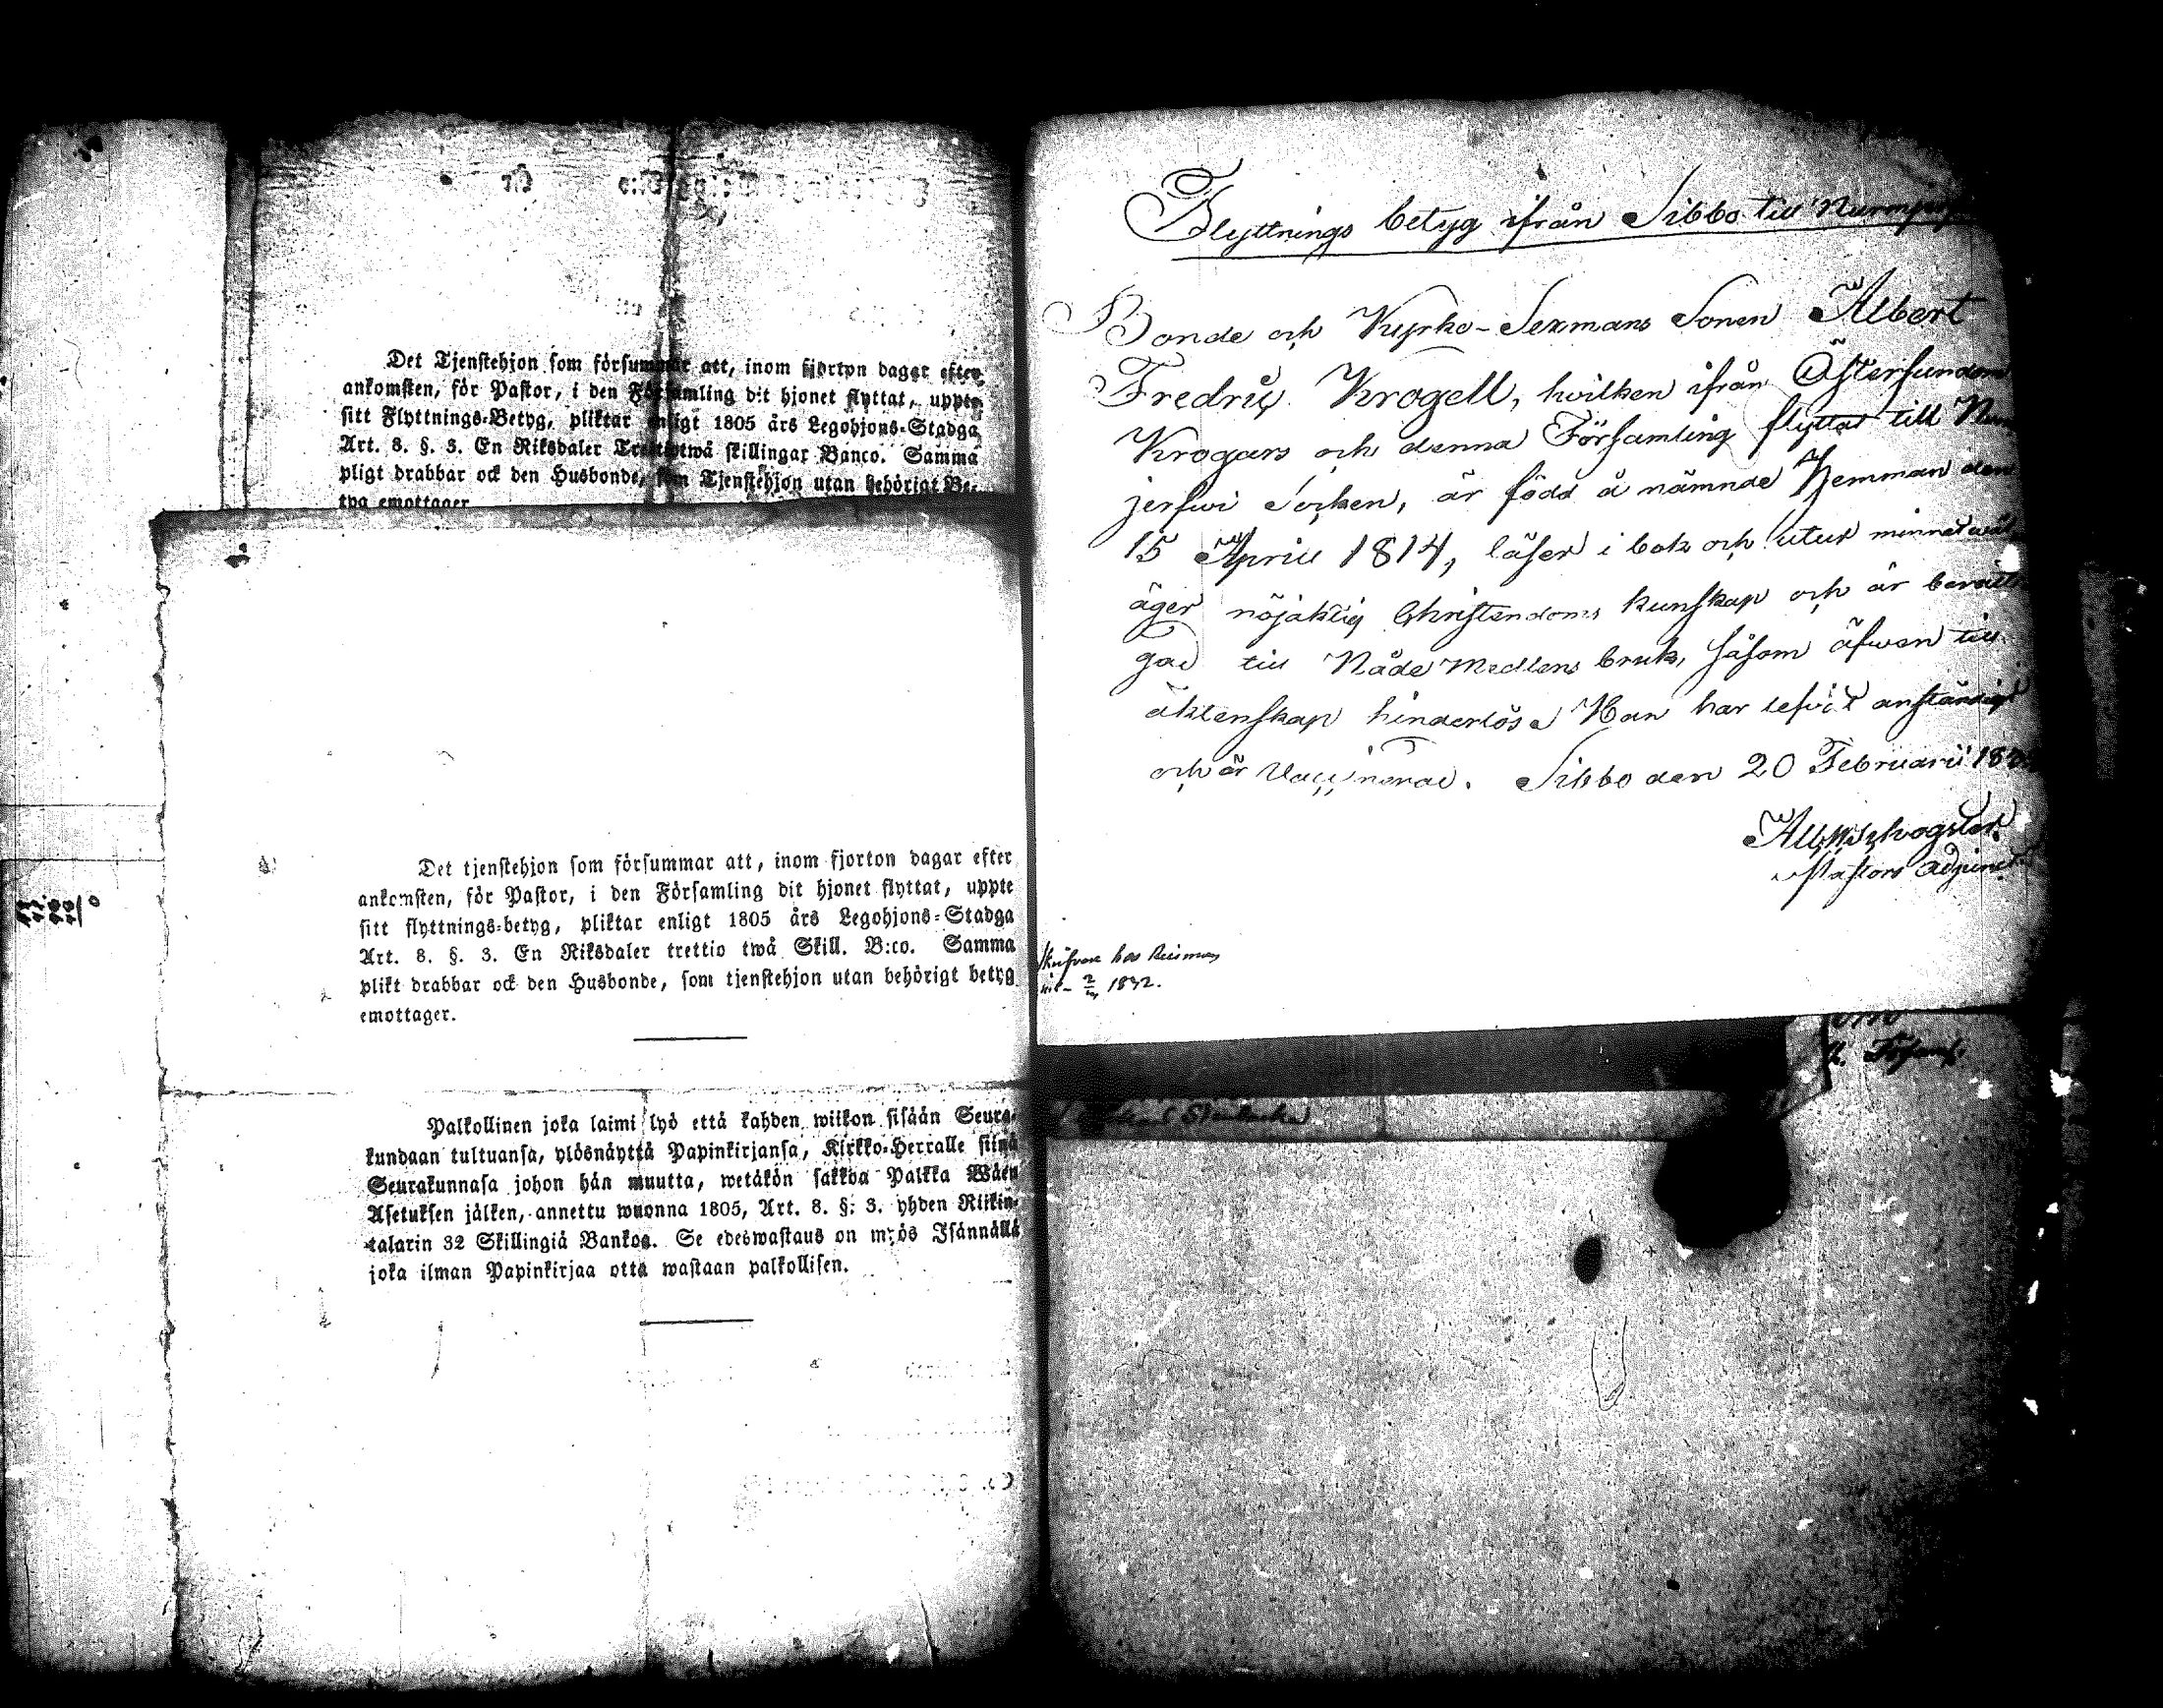 Det Tjenstehjon som försummar att, inom fjorton dagar efter
ankomsten, för Pastor, i den Församling dit hjonet flyttat, uppte
sitt Flyttnings-Betyg, pliktar enligt 1805 års Legohjons-Stadga
Art. 8. §. 3. En Riksdaler Trettitwå skillingar Banco. Samma
pligt drabbar ock den Husbonde, som Tjenstehjon utan behörigt Be-
tyg emottager
Det tjenstehjon som försummar att, inom fjorton dagar efter
ankomsten, för Pastor, i den Församling dit hjonet flyttat, uppte
sitt flyttnings-betyg, pliktar enligt 1805 års Legohjons-Stadga
Art. 8. §. 3. En Riksdaler trettio twå Skill. B:co. Samma
plikt drabbar ock den Husbonde, som tjenstehjon utan behörigt betyg
emottager.
Palkollinen joka laimi lyö että kahden wiikon sisään Seura-
kundaan tultuansa, ylösnäyttä Papinkirjansa, Kirkko-Herralle siinä
Seurakunnasa johon hän muutta, wetäkön sakkoa Palkka Wäen
Asetuksen jälken, annettu wuonna 1805, Art. 8. §. 3. yhden Riikin-
talarin 32 Skillingiä Bankoa. Se edeswastaus on myös Isännällä
joka ilman Papinkirjaa otta wastaan palkollisen.
Flyttnings betyg ifrån Sibbo till
Bonde och Kyrko-Sexmans Sonen Albert
Fredric Krogell, hvilken ifrån Östersundom
Krogars och denna Församling flyttar till Nur
jerfwi Socken, är född å nämnde Hemman den
15 April 1814, läser i bok och utur minnet wäl
äger nöjaktig Christendoms kunskap och är berätti
gad till Nåde Medlens bruk, såsom äfwen till
äktenskap hinderlös. Han har lefvat anständigt
och är Vaccinerad. Sibbo den 20 Februarii 183
Pastors Adjunct
1832.